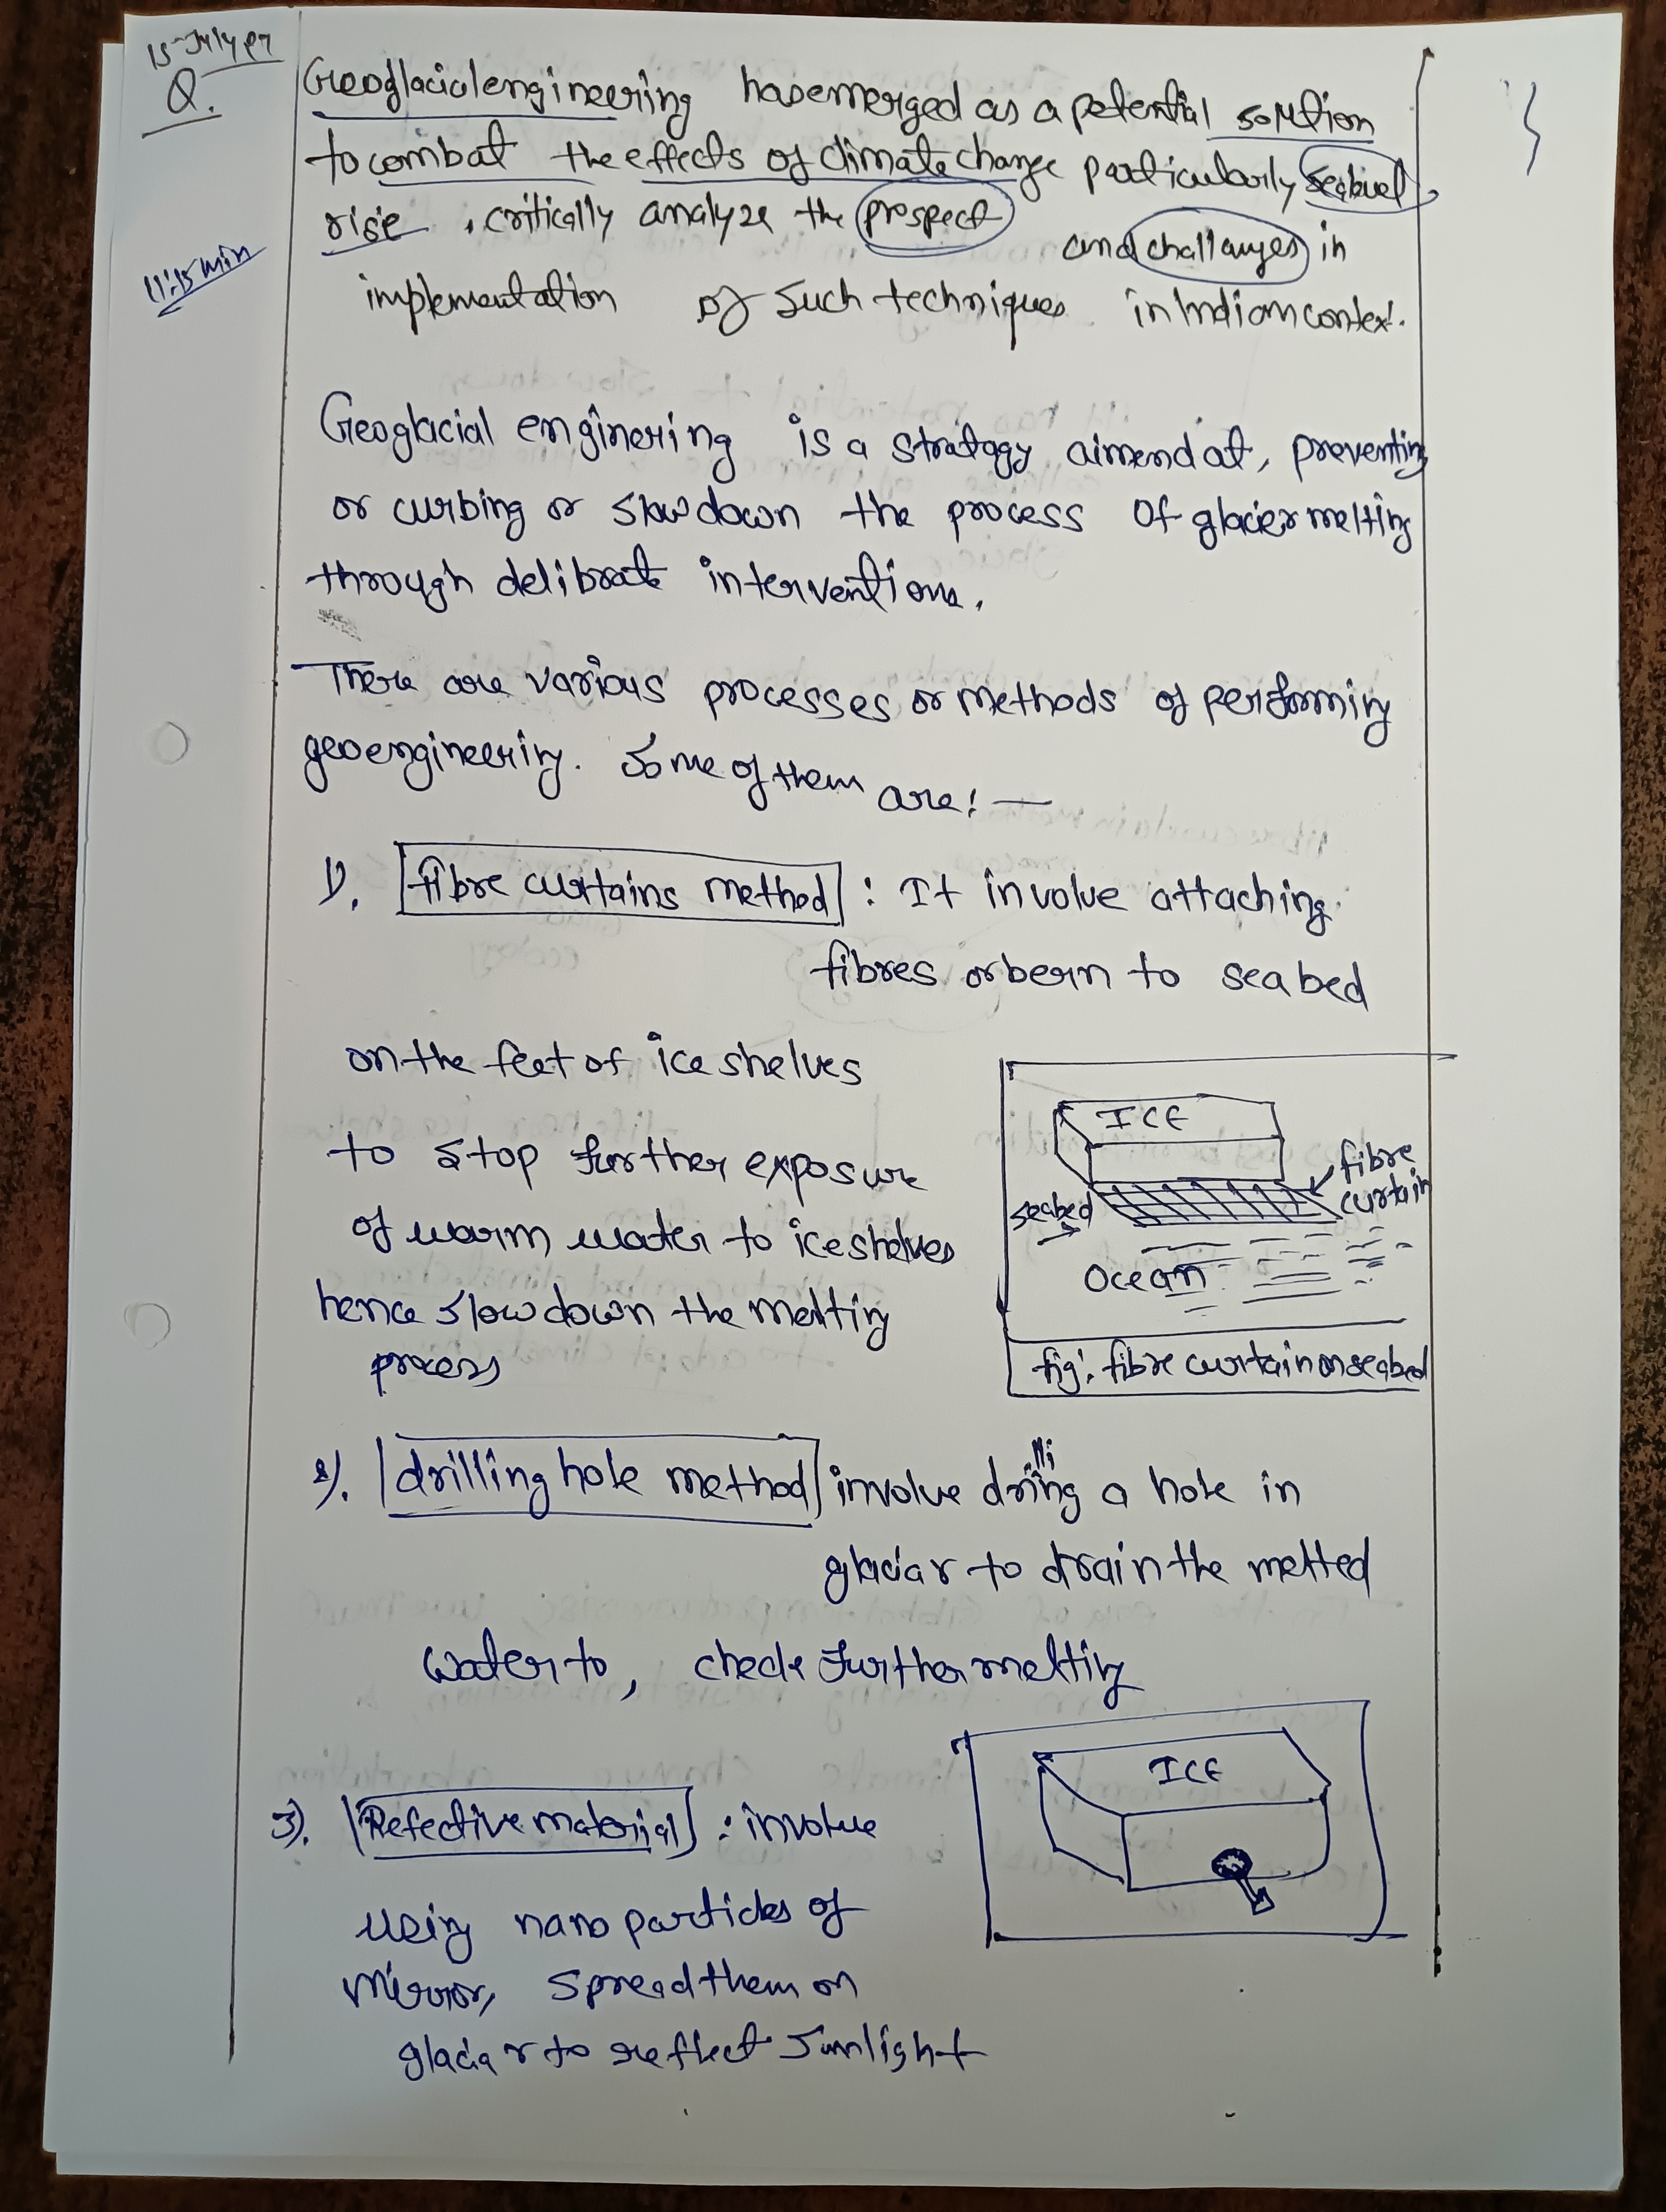 15-July 07
Q.
Geoglacialengineering has emerged as a potential solution
to combat the effects of climate change particularly sealevel
rise, critically analyze the prospect and challanges in
implementation of such techniques in Indian context.
11:15 min
Geoglacial enginering is a stratagy aimend at, preventing
or curbing or slow down the process of glacier melting
through delibrate interventions.
There are various processes or methods of performing
geoengineering. Some of them are: —
1). fibre curtains method : It involve attaching
fibres or berm to sea bed
on the feet of ice shelves
to stop further exposure
of warm water to ice shelves
hence slow down the melting
process
ICE
fibre
curtain
seabed
ocean
fig: fibre curtain on seabed
2). drilling hole method involve drilling a hole in
glaciar to drain the melted
water to, check further melting
3). Refective material : involve
using nano particles of
mirror, spread them on
glaciar to reflect sunlight
ICE